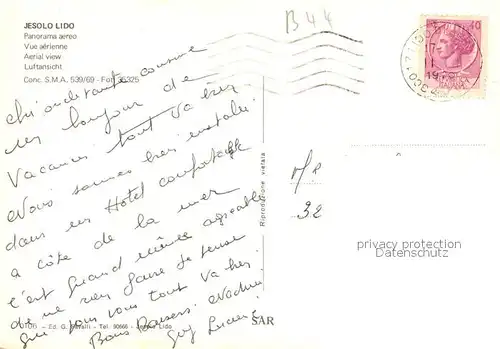 JESOLO LIDO
Panorama aereo
Vue aérienne
Aerial view
Luftansicht
Conc. S.M.A. 539/69 - Fot. 35325
B44
un bonjour de
Vacances tout va bien
Nous sommes bien installé
dans un Hotel confortable
a côte de la mer
c'est quand même agreable
de ne rien faire Je pense
que pour vous tout va bien
Bons Baisers
Guy Lucien
Riproduzione vietata
32
privacy protection
Datenschutz
Ed. G. - Tel. 90666 - Jesolo Lido
SAR